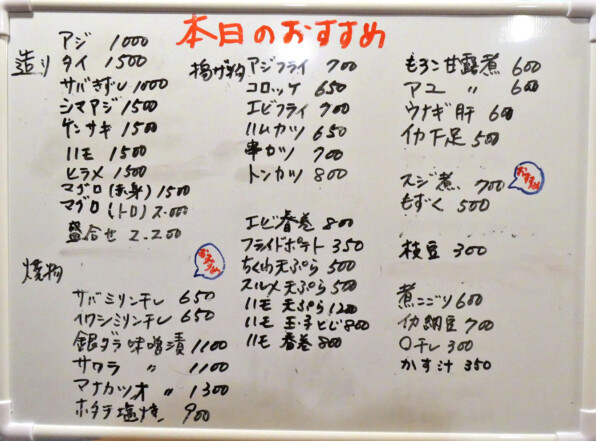 本日のおすすめ
造り
アジ 1000
タイ 1500
サバきずし 1000
シマアジ 1500
ケンサキ 1500
ハモ 1500
ヒラメ 1500
マグロ(赤身) 1500
マグロ(トロ) 2.000
盛合せ 2.200
焼物
おすすめ
サバミリン干し 650
イワシミリン干し 650
銀ダラ味噌漬 1100
サワラ 〃 1100
マナカツオ 〃 1300
ホタテ塩焼 900
揚げ物
アジフライ 700
コロッケ 650
エビフライ 900
ハムカツ 650
串カツ 700
トンカツ 800
エビ春巻 800
フライドポテト 350
ちくわ天ぷら 500
スルメ天ぷら 500
ハモ 天ぷら 1200
ハモ 玉子とじ 800
ハモ 春巻 800
もろこ甘露煮 600
アユ 〃 600
ウナギ肝 600
イカ下足 500
スジ煮 700
おすすめ
もずく 500
枝豆 300
煮こごり 600
イカ納豆 700
〇干し 300
かす汁 350